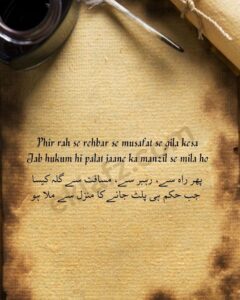 Phir rah se rehbar se musafat se gila kesa
Jab hukum hi palat jaane ka manzil se mila ho
پھر راہ سے، رہبر سے، مسافت سے گلہ کیسا
جب حکم ہی پلٹ جانے کا منزل سے ملا ہو